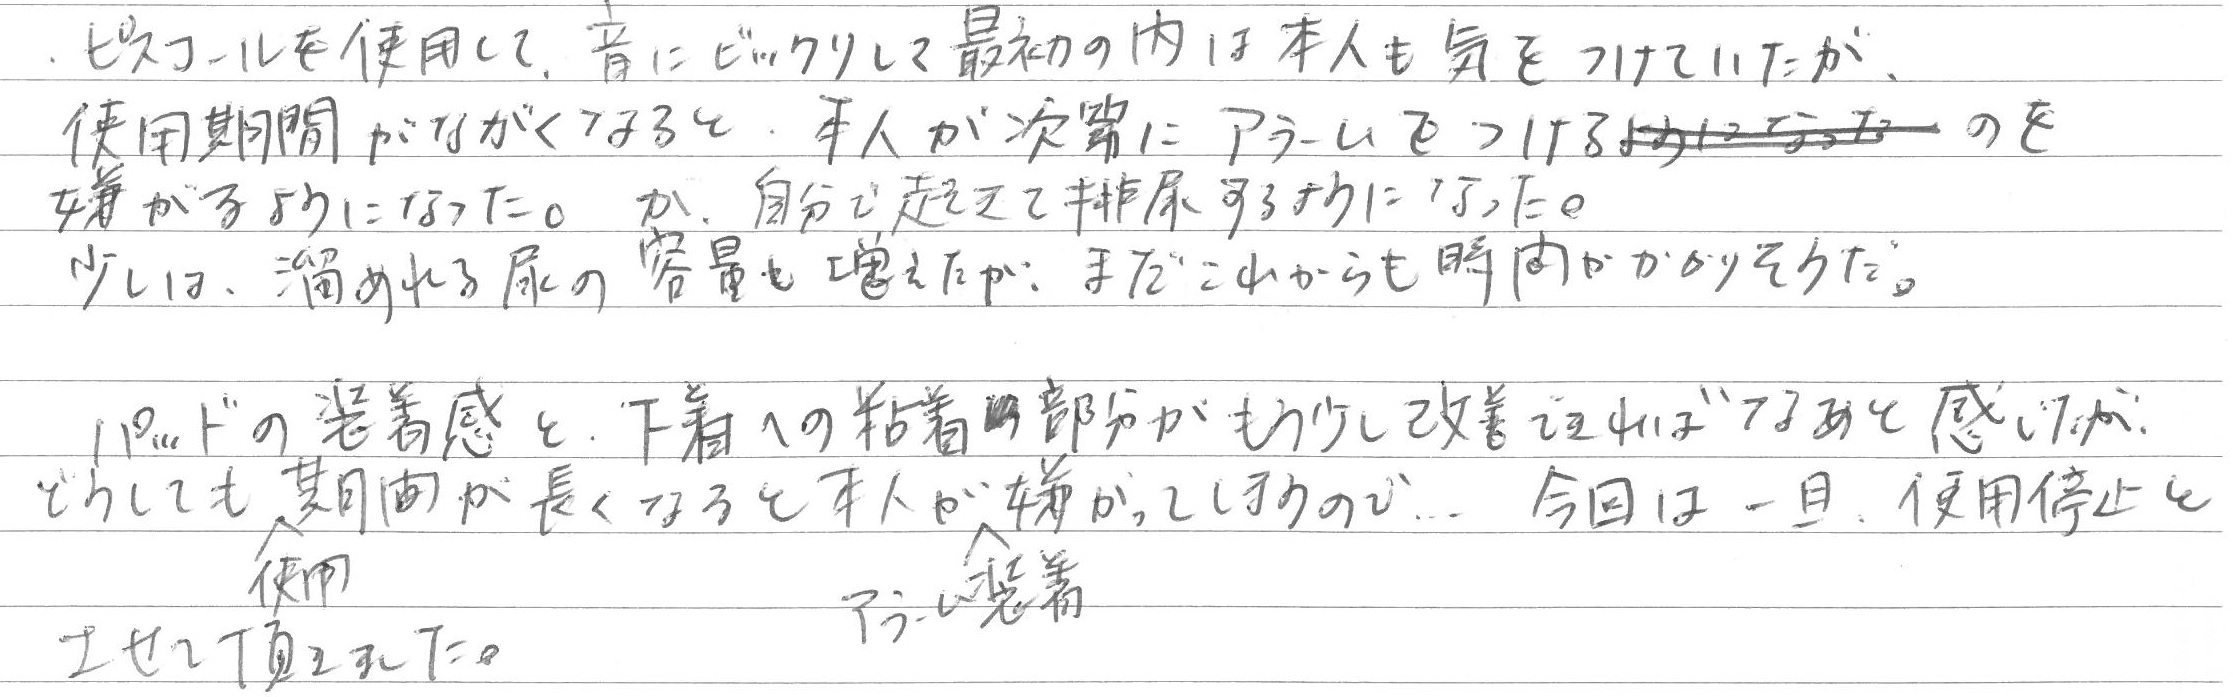 ・ピスコールを使用して、音にビックリして最初の内は本人も気をつけていたが、
使用期間がながくなると、本人が次第にアラームをつけるようになったのを
嫌がるようになった。が、自分で起きて排尿するようになった。
少しは、溜めれる尿の容量も増えたが、まだこれからも時間がかかりそうだ。
パッドの装着感と、下着への粘着部分がもう少し改善できればなあと感じたが、
どうしても期間が長くなると本人が嫌がってしまうので… 今回は一旦、使用停止と
使用
アラーム装着
させて頂きました。